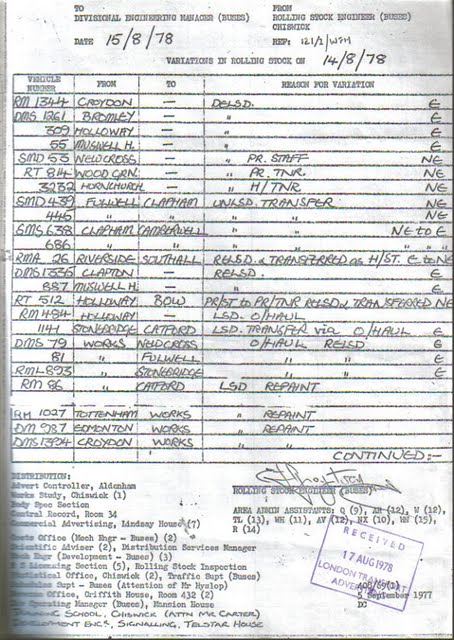 TO FROM
DIVISIONAL ENGINEERING MANAGER (BUSES) ROLLING STOCK ENGINEER (BUSES)
CHISWICK
DATE 15/8/78 REF: 121/2/WFH
VARIATIONS IN ROLLING STOCK ON 14/8/78
VEHICLE NUMBER FROM TO REASON FOR VARIATION
RM 1344 CROYDON — DELSD. E
DMS 1261 BROMLEY — " E
309 HOLLOWAY — " E
55 MUSWELL H. — " E
SMD 53 NEWCROSS — " PR. STAFF NE
RT 814 WOOD GRN. — " PR. TNR. NE
3232 HORNCHURCH — " H/TNR NE
SMD 439 FULWELL CLAPHAM UNLSD. TRANSFER NE
446 " " " " NE
GMS 638 CLAPHAM CAMBERWELL " " NE to E
686 " " " " " " "
RMA 26 RIVERSIDE SOUTHALL RELSD. & TRANSFERRED as H/ST. E to NE
DMS 1336 CLAPTON — RELSD. E
887 MUSWELL H. — " E
RT 512 HOLLOWAY BOW PR/ST to PR/TNR RELSD & TRANSFERRED NE
RM 494 HOLLOWAY — LSD. O/HAUL E
1141 STONEBRIDGE CATFORD LSD. TRANSFER via O/HAUL E
DMS 79 WORKS NEWCROSS O/HAUL RELSD E
81 " FULWELL " " E
RML 893 " STONEBRIDGE " " E
RM 86 " CATFORD LSD REPAINT
RM 1027 TOTTENHAM WORKS " REPAINT
DM 987 EDMONTON WORKS " REPAINT
DMS 1394 CROYDON WORKS " "
CONTINUED:—
DISTRIBUTION:
Advert Controller, Aldenham
Works Study, Chiswick (1)
Body Spec Section
Central Record, Room 34
Commercial Advertising, Lindsay House (7)
Costs Office (Mech Engr - Buses) (2)
Scientific Adviser (2), Distribution Services Manager
Mech Engr (Development - Buses) (3)
Licensing Section (5), Rolling Stock Inspection
Office, Chiswick (2), Traffic Supt (Buses)
Supt - Buses (Attention of Mr Hyslop)
Office, Griffith House, Room 432 (2)
Operating Manager (Buses), Mansion House
TRAINING SCHOOL, CHISWICK (ATTN MR CARTER)
DEVELOPMENT ENGR. SIGNALLING, TELSTAR HOUSE
ROLLING STOCK ENGINEER (BUSES)
AREA ADMIN ASSISTANTS: Q (9), AR (12), W (12),
TL (13), WH (11), AV (12), NX (10), WN (15),
R (14)
RECEIVED
17 AUG 1978
LONDON TRANSPORT
ADVERTISING
5 September 1977
DC